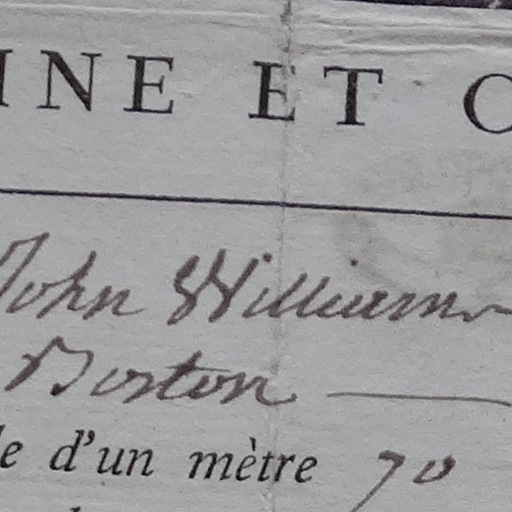 INE ET C
John Williams
Boston
le d'un mètre 70